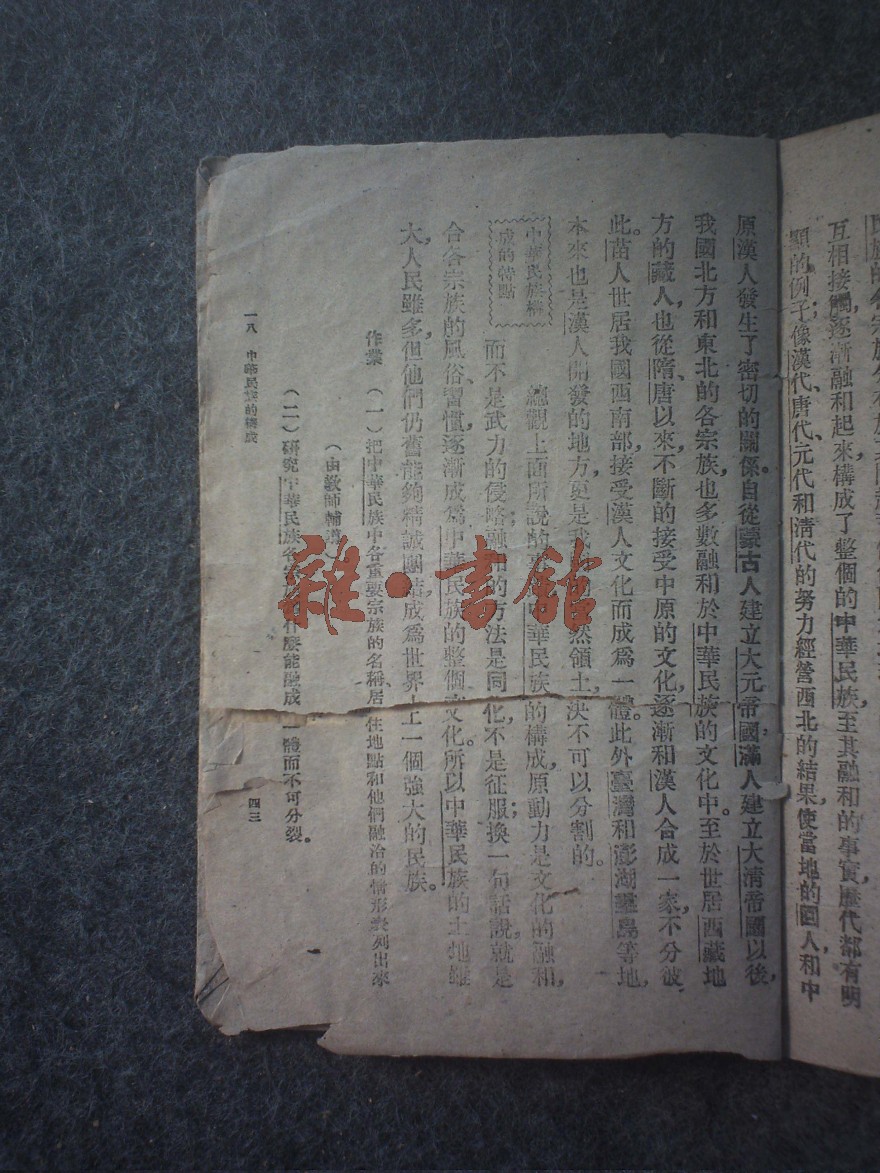 民族的各宗族
互相接觸,逐漸融和起來,構成了整個的中華民族。至其融和的事實,歷代都有明
顯的例子;像漢代、唐代、元代和清代的努力經營西北的結果,使當地的回人和中
原漢人發生了密切的關係。自從蒙古人建立大元帝國,滿人建立大清帝國以後,
我國北方和東北的各宗族,也多數融和於中華民族的文化中。至於世居西藏地
方的藏人,也從隋、唐以來,不斷的接受中原的文化,逐漸和漢人合成一家,不分彼
此。苗人世居我國西南部,接受漢人文化而成為一體。此外臺灣和澎湖羣島等地,
本來也是漢人開發的地方,更是我然領土,決不可以分割的。
中華民族構
成的特點
總觀上面所說的中華民族的構成,原動力是文化的融和,
而不是武力的侵略;融和的方法是同化,不是征服;換一句話說,就是
合各宗族的風俗、習慣,逐漸成為中華民族的整個文化。所以中華民族的土地雖
大,人民雖多,但他們仍舊能夠精誠團結,成為世界上一個強大的民族。
作業 (一)把中華民族中各重要宗族的名稱居住地點和他們融洽的情形表列出來
(由教師輔導)
(二)研究中華民族各麼能融成一體而不可分裂。
一八 中華民族的構成 四三
雜·書館